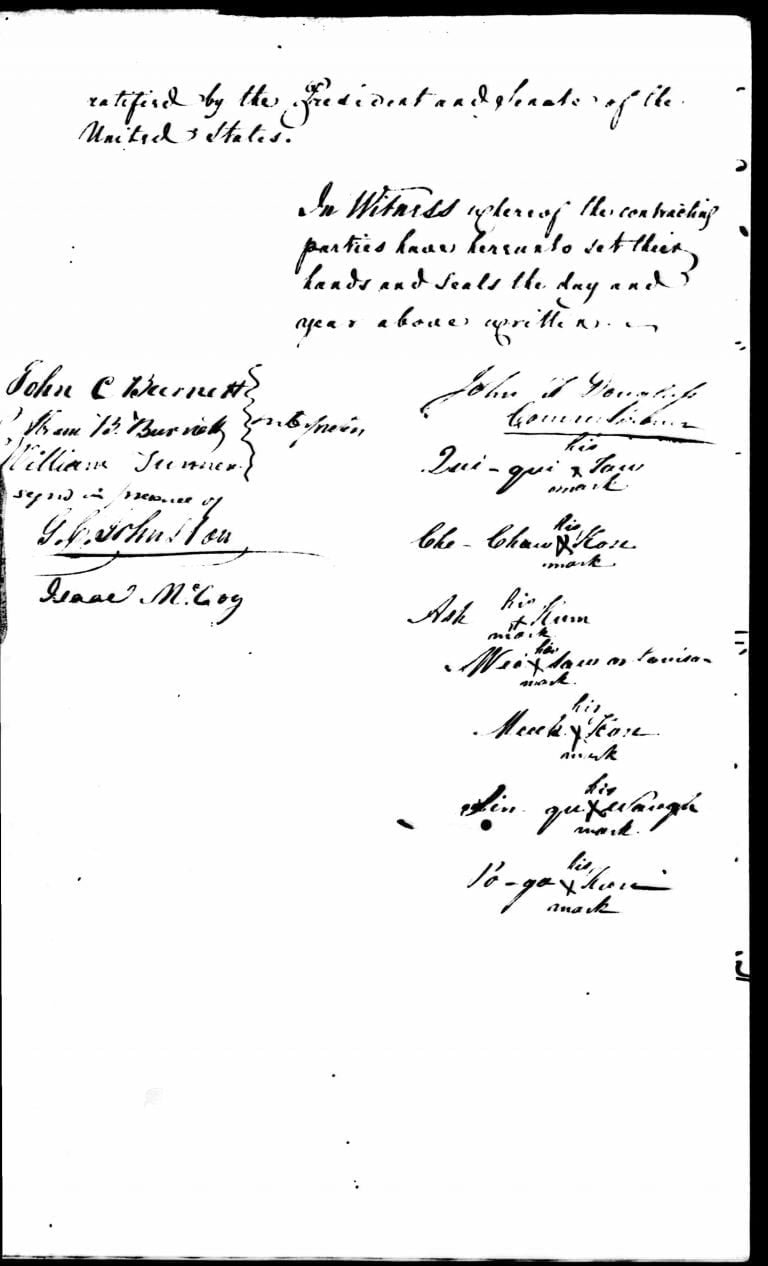 ratified by the President and Senate of the
United States.
In Witness whereof the contracting
parties have hereunto set their
hands and seals the day and
year above written.
John T Douglass
Commissioner
his
Qui-qui x Taw
mark
his
Che-Chaw x Kose
mark
his
Ash x Kum
mark
his
x saw or Louison
mark
his
Muck x Kose
mark
his
qui x Waugh
mark
his
Po-ga x Kose
mark
John C Burnett
B. Burnett
William Turner
signd in presence of
G. C. Johnston
Isaac McCoy